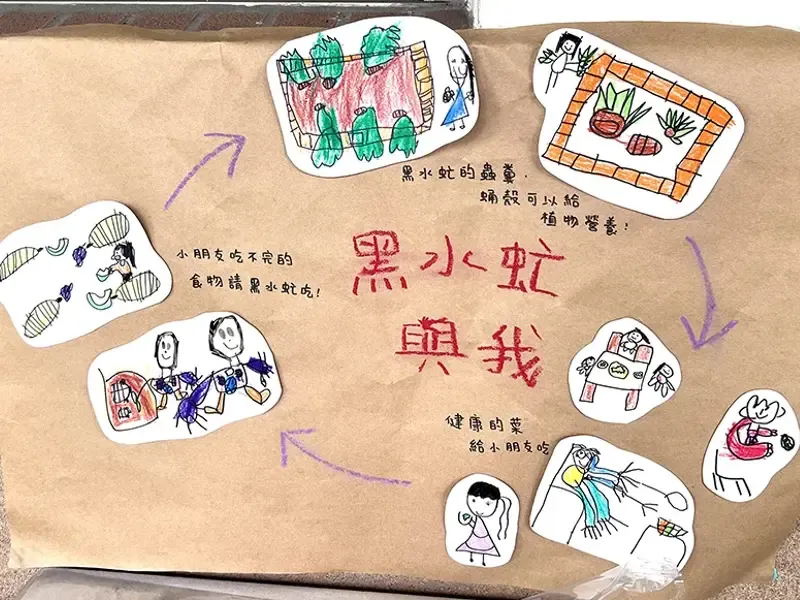 黑水虻的蟲糞.
蛹殼可以給
植物營養!
小朋友吃不完的
食物請黑水虻吃!
黑水虻
與我
健康的菜
給小朋友吃